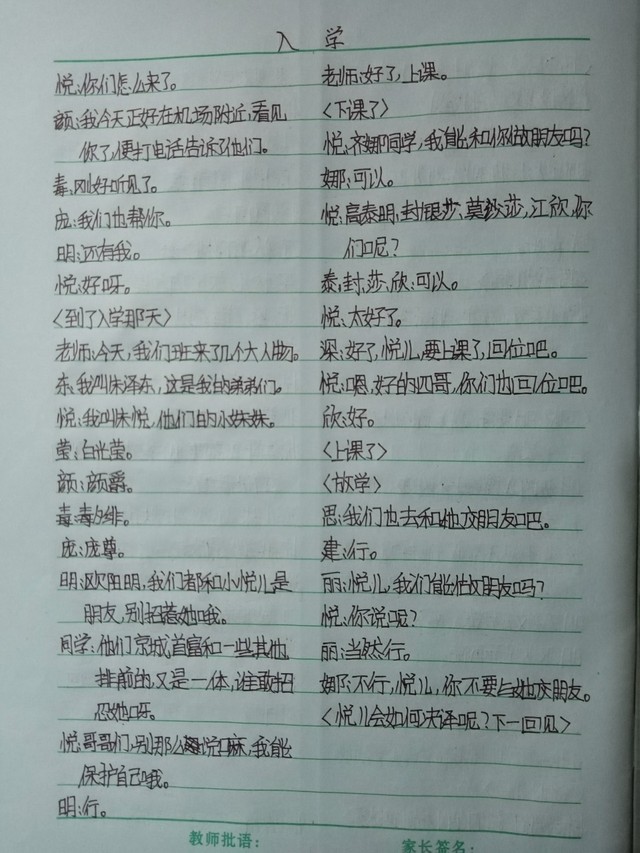 入学
悦:你们怎么来了。
颜:我今天正好在机场附近,看见
你了,便打电话告诉了他们。
毒:刚好听见了。
庞:我们也帮你。
明:还有我。
悦:好呀。
〈到了入学那天〉
老师:今天,我们班来了几个大人物。
东:我叫朱泽东,这是我的弟弟们。
悦:我叫朱悦,他们的小妹妹。
莹:白光莹。
颜:颜爵。
毒:毒夕绯。
庞:庞尊。
明:欧阳明,我们都和小悦儿是
朋友,别招惹她哦。
同学:他们京城首富和一些其他
排前的,又是一体,谁敢招
惹她呀。
悦:哥哥们,别那么说嘛,我能
保护自己哦。
明:行。
老师:好了,上课。
〈下课了〉
悦:齐娜同学,我能和你做朋友吗?
娜:可以。
悦:高泰明,封银莎,莫纱莎,江欣,你
们呢?
泰,封,莎,欣:可以。
悦:太好了。
深:好了,悦儿,要上课了,回位吧。
悦:嗯,好的四哥,你们也回位吧。
欣:好。
〈上课了〉
〈放学〉
思:我们也去和她交朋友吧。
建:行。
丽:悦儿,我们能做朋友吗?
悦:你说呢?
丽:当然行。
娜:不行,悦儿,你不要与她交朋友。
〈悦儿会如何决译呢?下一回见〉
教师批语:
家长签名: